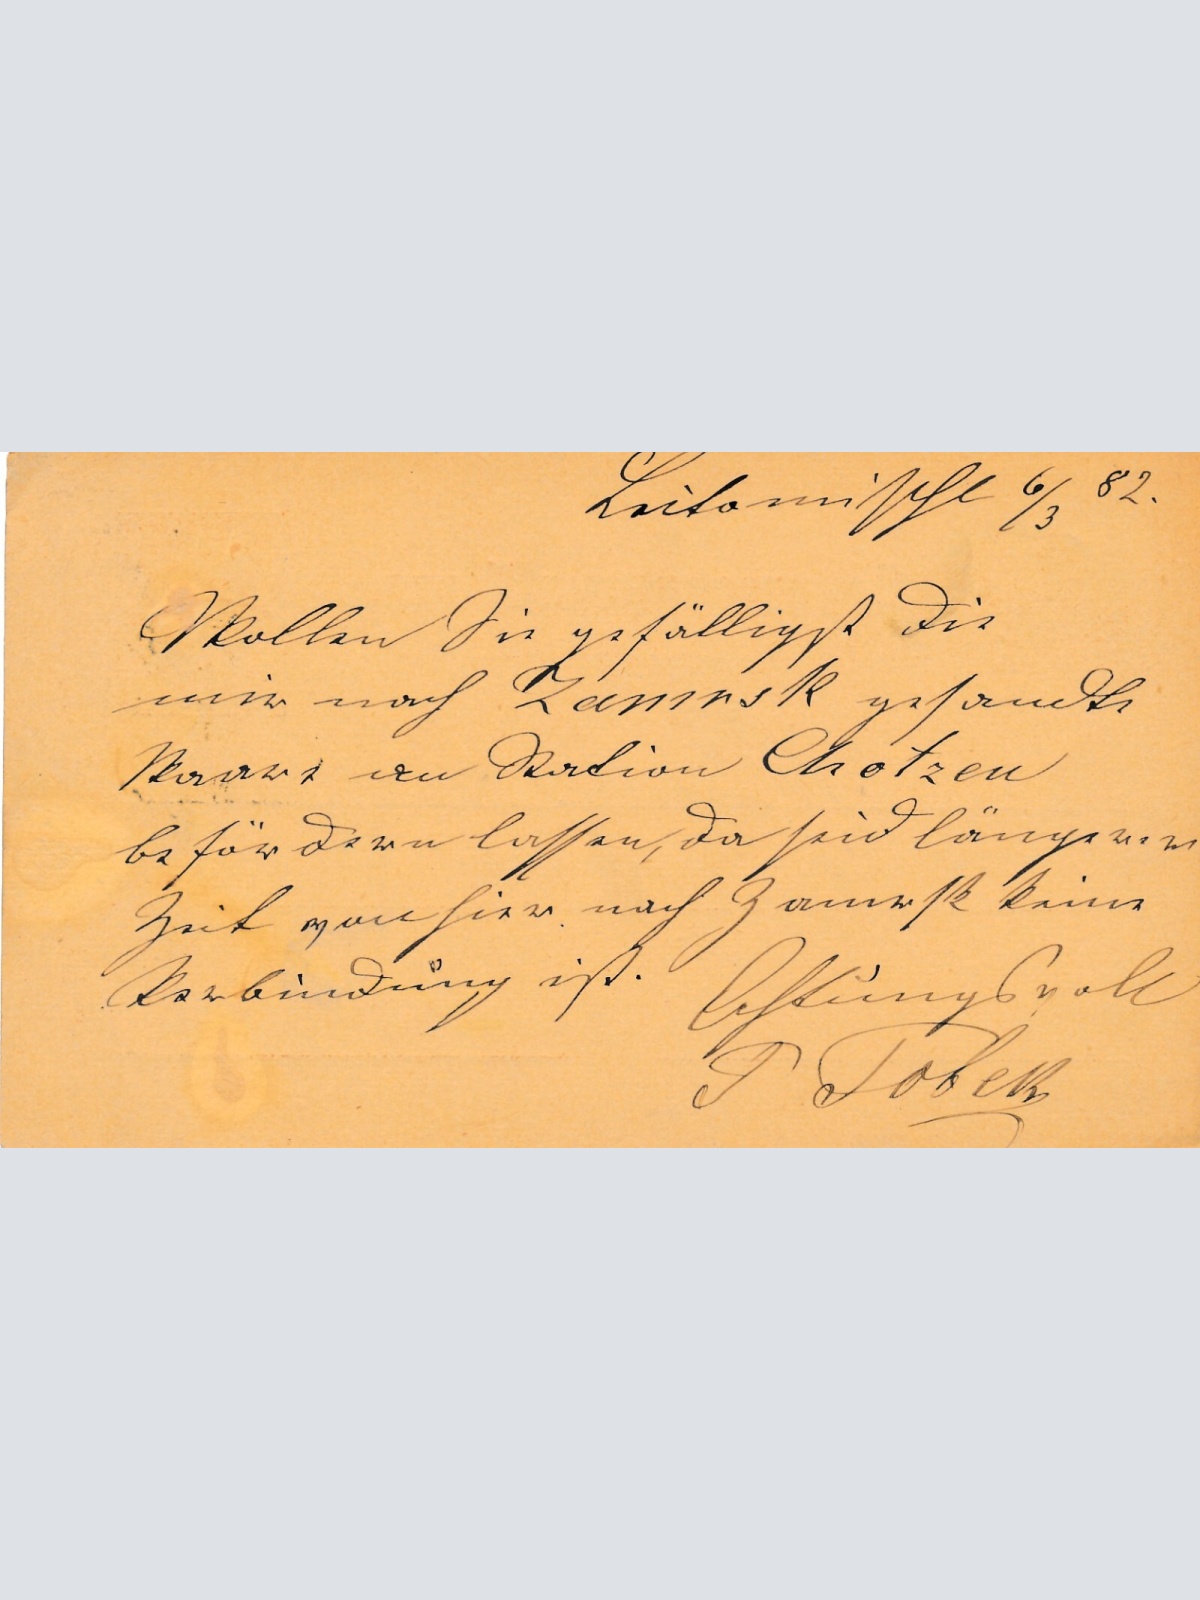 Leitomischl 6/3 82.
Wollen Sie gefälligst die
mir nach Zamrsk gesandte
Waare an Station Chotzen
befördern lassen, da seid längerer
Zeit von hier nach Zamrsk keine
Verbindung ist. Achtungsvoll
T Tobek